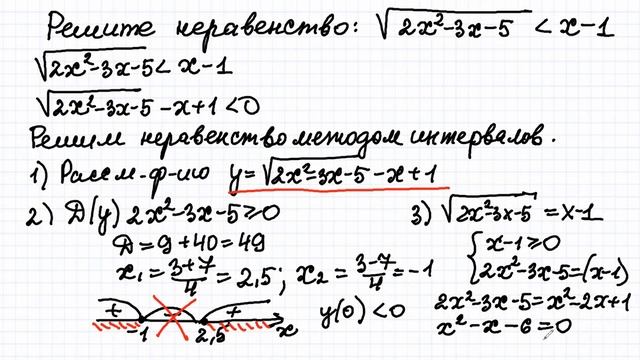 Решите неравенство: √(2x²-3x-5) < x-1
√(2x²-3x-5) < x-1
√(2x²-3x-5) -x+1 <0
Решим неравенство методом интервалов.
1) Рассм. ф-ию y=√(2x²-3x-5) -x+1
2) D(y) 2x²-3x-5≥0
D=9+40=49
x₁=(3+7)/4=2,5; x₂=(3-7)/4=-1
+ - +
-1 2,5 x
y(0)<0
3) √(2x²-3x-5) =x-1
{ x-1≥0
2x²-3x-5=(x-1)
2x²-3x-5=x²-2x+1
x²-x-6=0